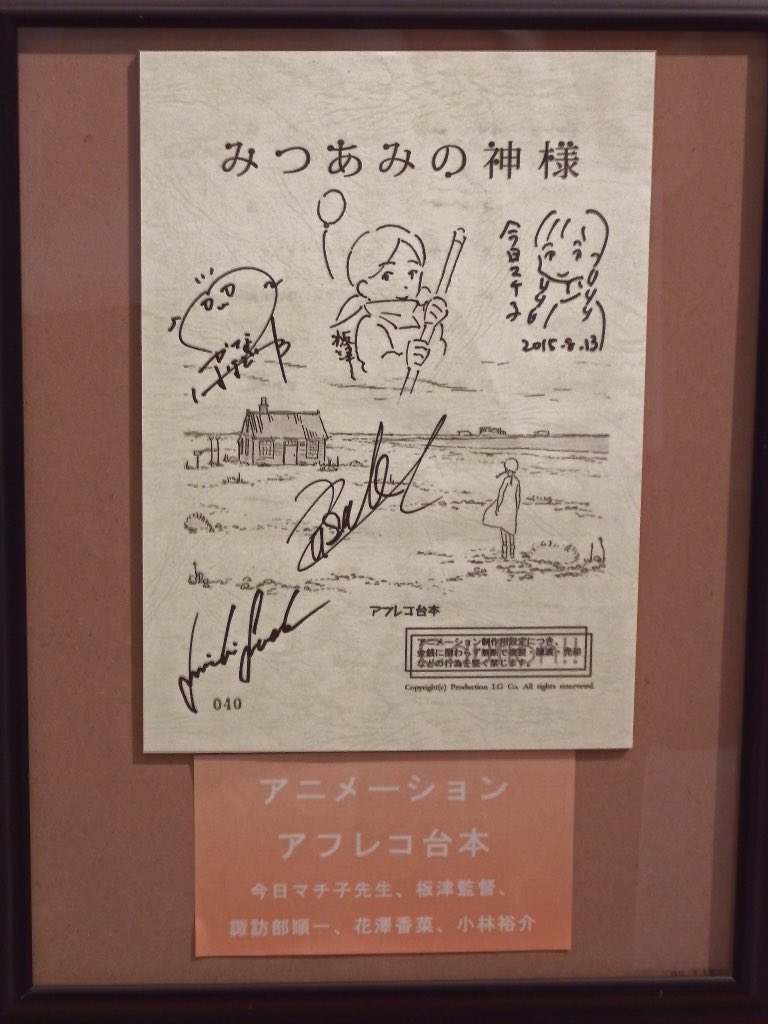 みつあみの神様
今日マチ子
板津
2015.8.13
アフレコ台本
アニメーション制作用設定につき、
金銭に関わらず無断で複製・譲渡・売却
などの行為を堅く禁じます。
Copyright(c) Production I.G Co. All rights reserverd.
040
アニメーション
アフレコ台本
今日マチ子先生、板津監督、
諏訪部順一、花澤香菜、小林裕介